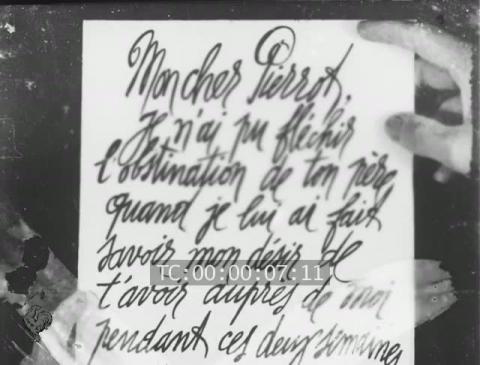 Mon cher Pierrot,
Je n'ai pu fléchir
l'obstination de ton père,
quand je lui ai fait
savoir mon désir de
TC:00:00:07:11
t'avoir auprès de moi
pendant ces deux semaines